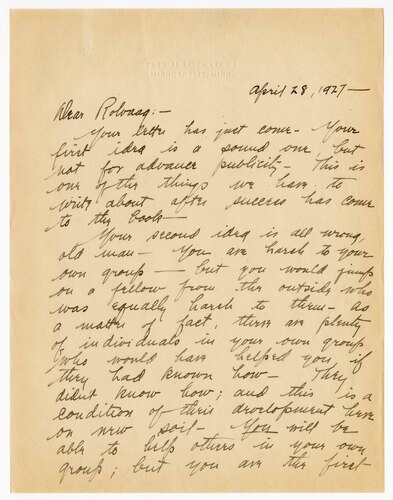 MINNEAPOLIS, MINN.
April 28, 1927—
Dear Rolvaag:—
Your letter has just come— Your
first idea is a sound one, but
not for advance publicity— This is
one of the things we have to
write about after success has come
to the book—
Your second idea is all wrong,
old man— You are harsh to your
own group — but you would jump
on a fellow from the outside who
was equally harsh to them— As
a matter of fact, there are plenty
of individuals in your own group
who would have helped you, if
they had known how— They
didnt know how; and this is a
condition of their development here
on new soil— You will be
able to help others in your own
group; but you are the first—